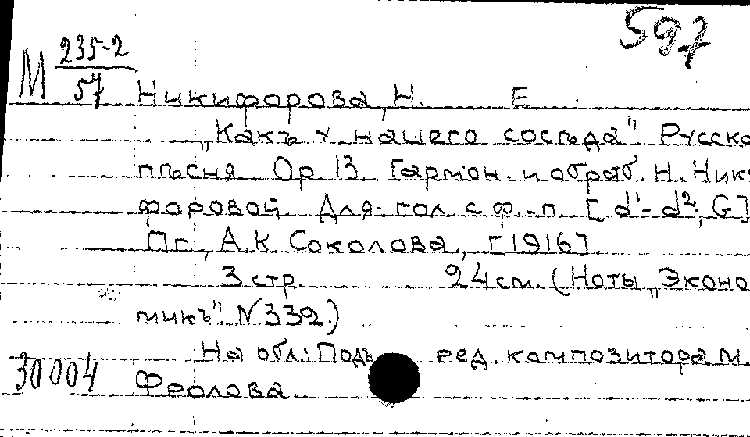 597
М 235-2
57
Никифорова, Н. Е
"Какъ у нашего сосѣда" Русска
пѣсня. Op 13. Гармон. и обраб. Н. Ник
форовой. Для гол. с ф.-п. [d¹-d², G]
Пг., А. К. Соколова, [1916]
3 стр. 24 см. (Ноты "Эконо
микъ" N 332.)
На обл.: Подъ ред. композитора М.
30004 Фролова